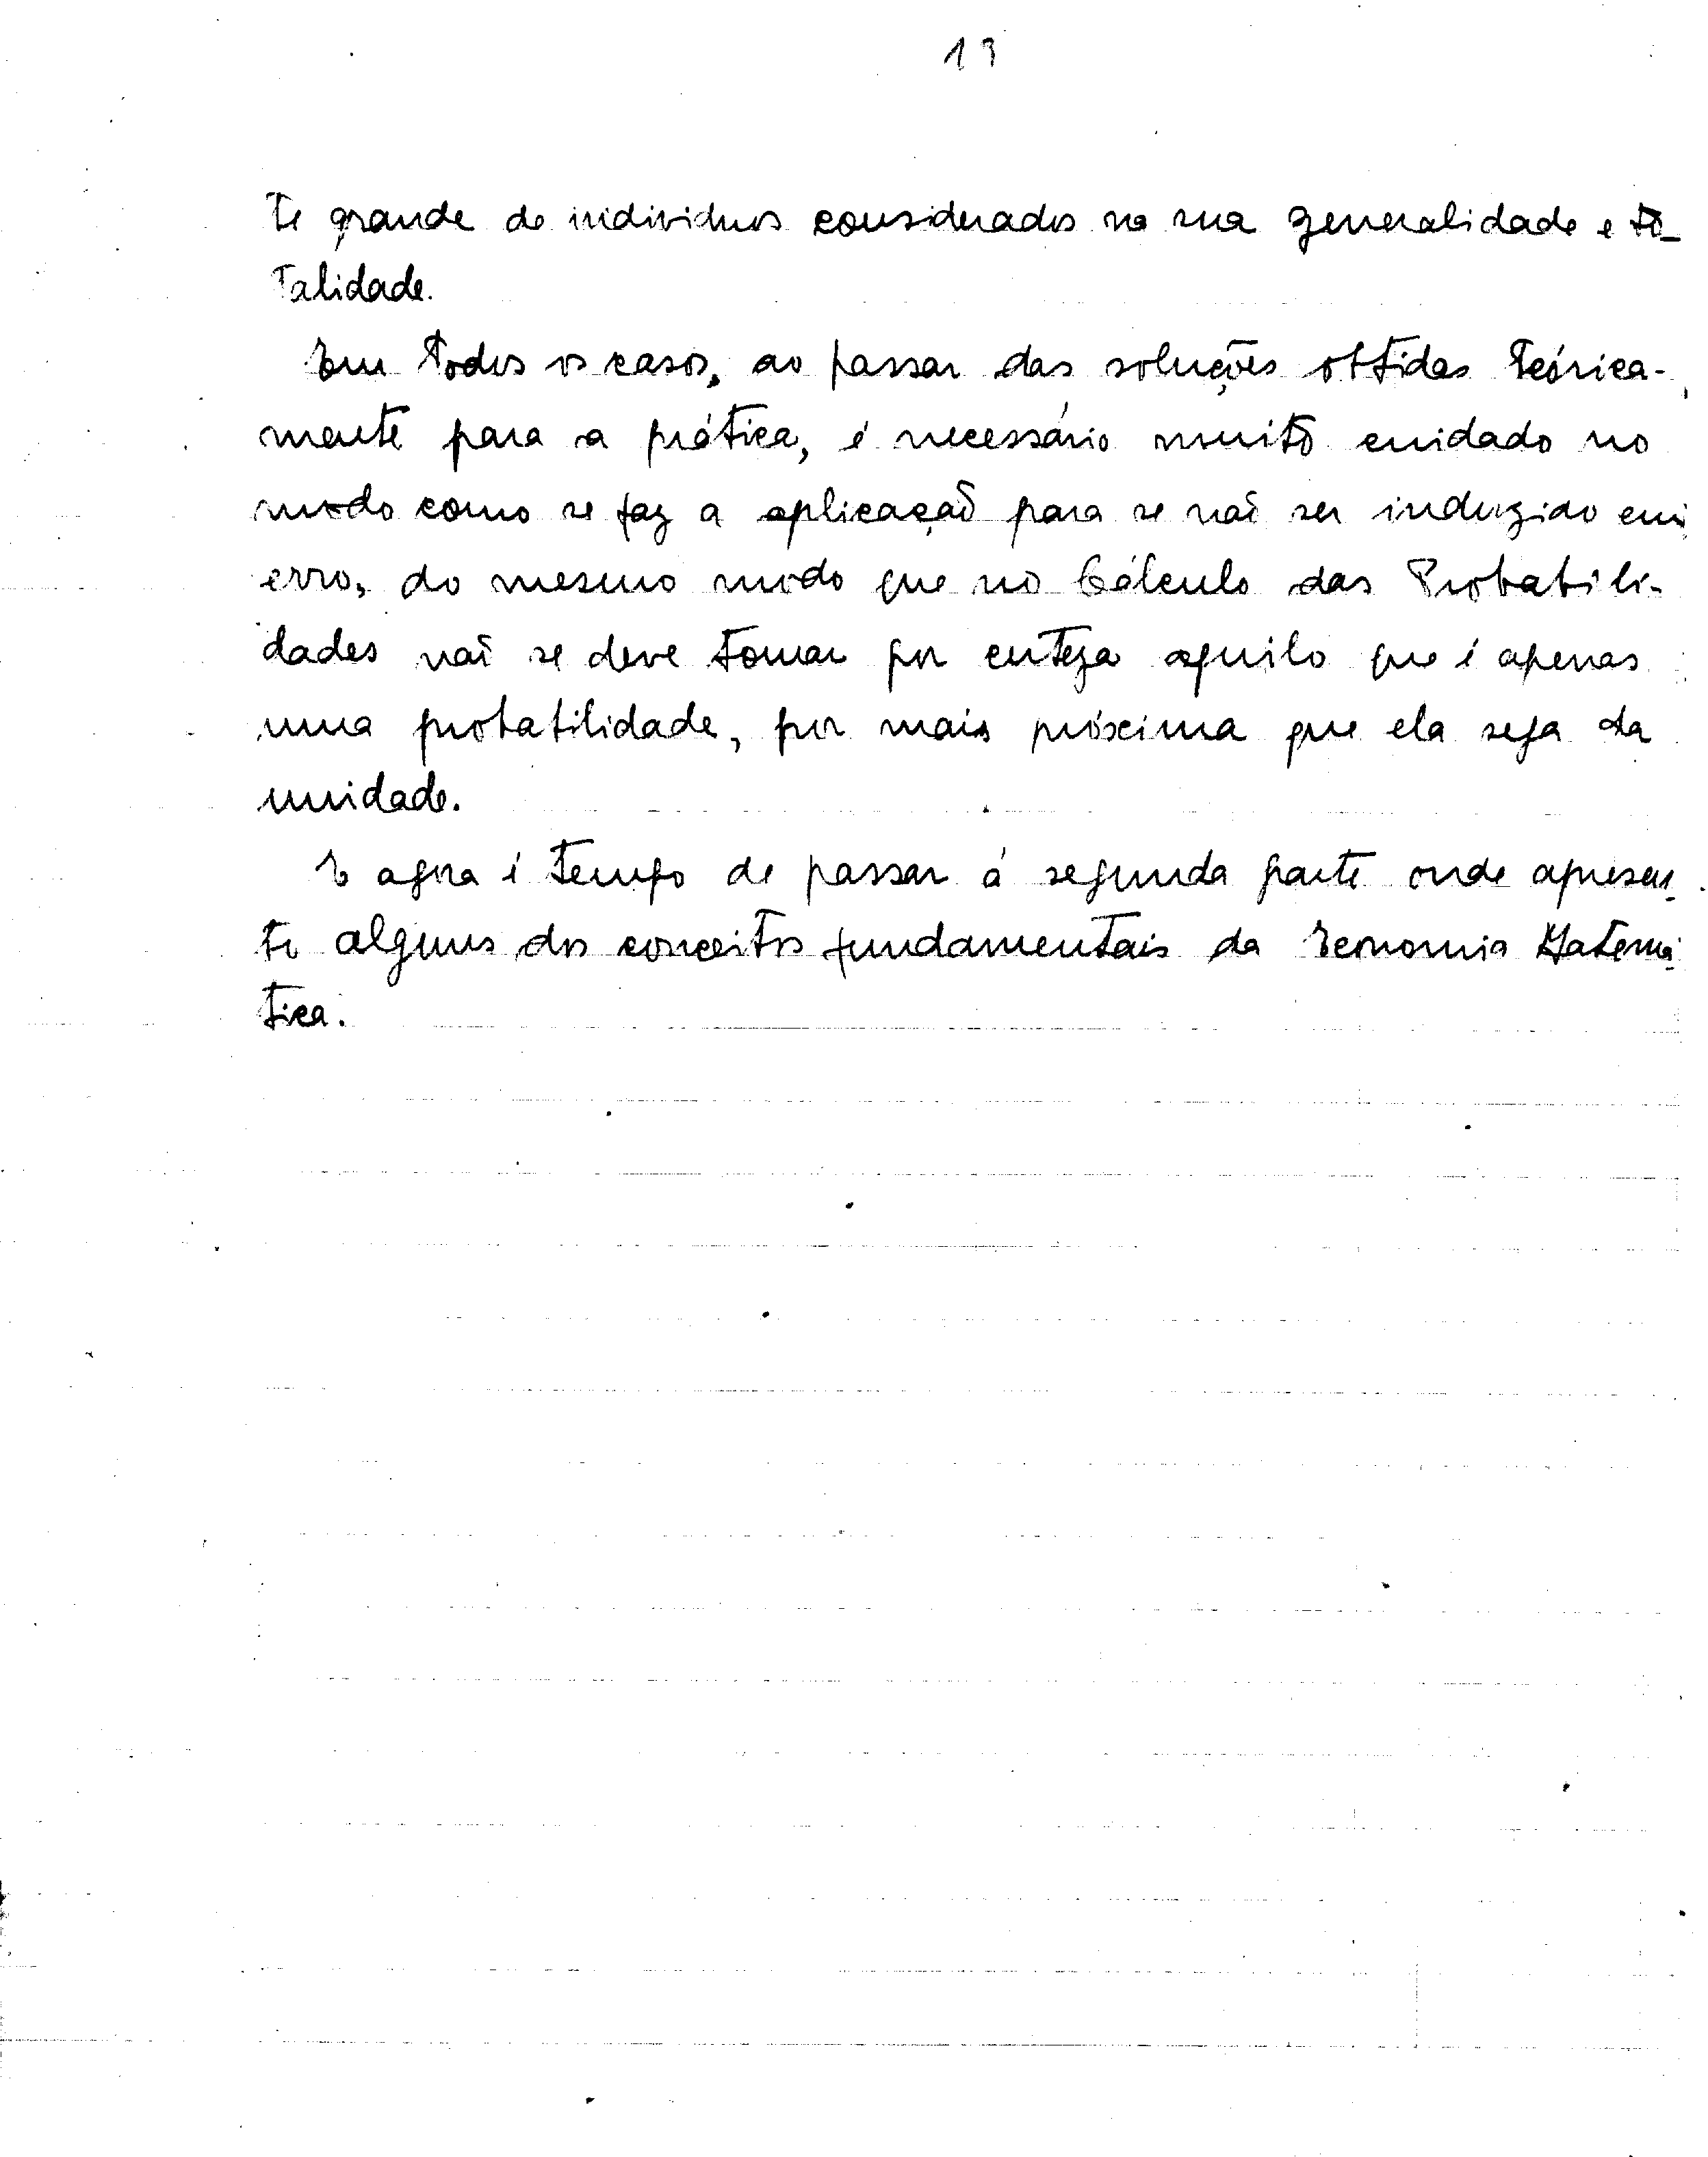 19
te grande de individuos considerados na sua generalidade e to-
talidade.
Em todos os casos, ao passar das soluções obtidas teórica-
mente para a prática, é necessário muito cuidado no
modo como se faz a aplicação para se não ser induzido em
erro, do mesmo modo que no Cálculo das Probabili-
dades não se deve tomar por certeza aquilo que é apenas
uma probabilidade, por mais próxima que ela seja da
unidade.
E agora é tempo de passar á segunda parte onde apresen-
to alguns dos conceitos fundamentais da Economia Matemá-
tica.